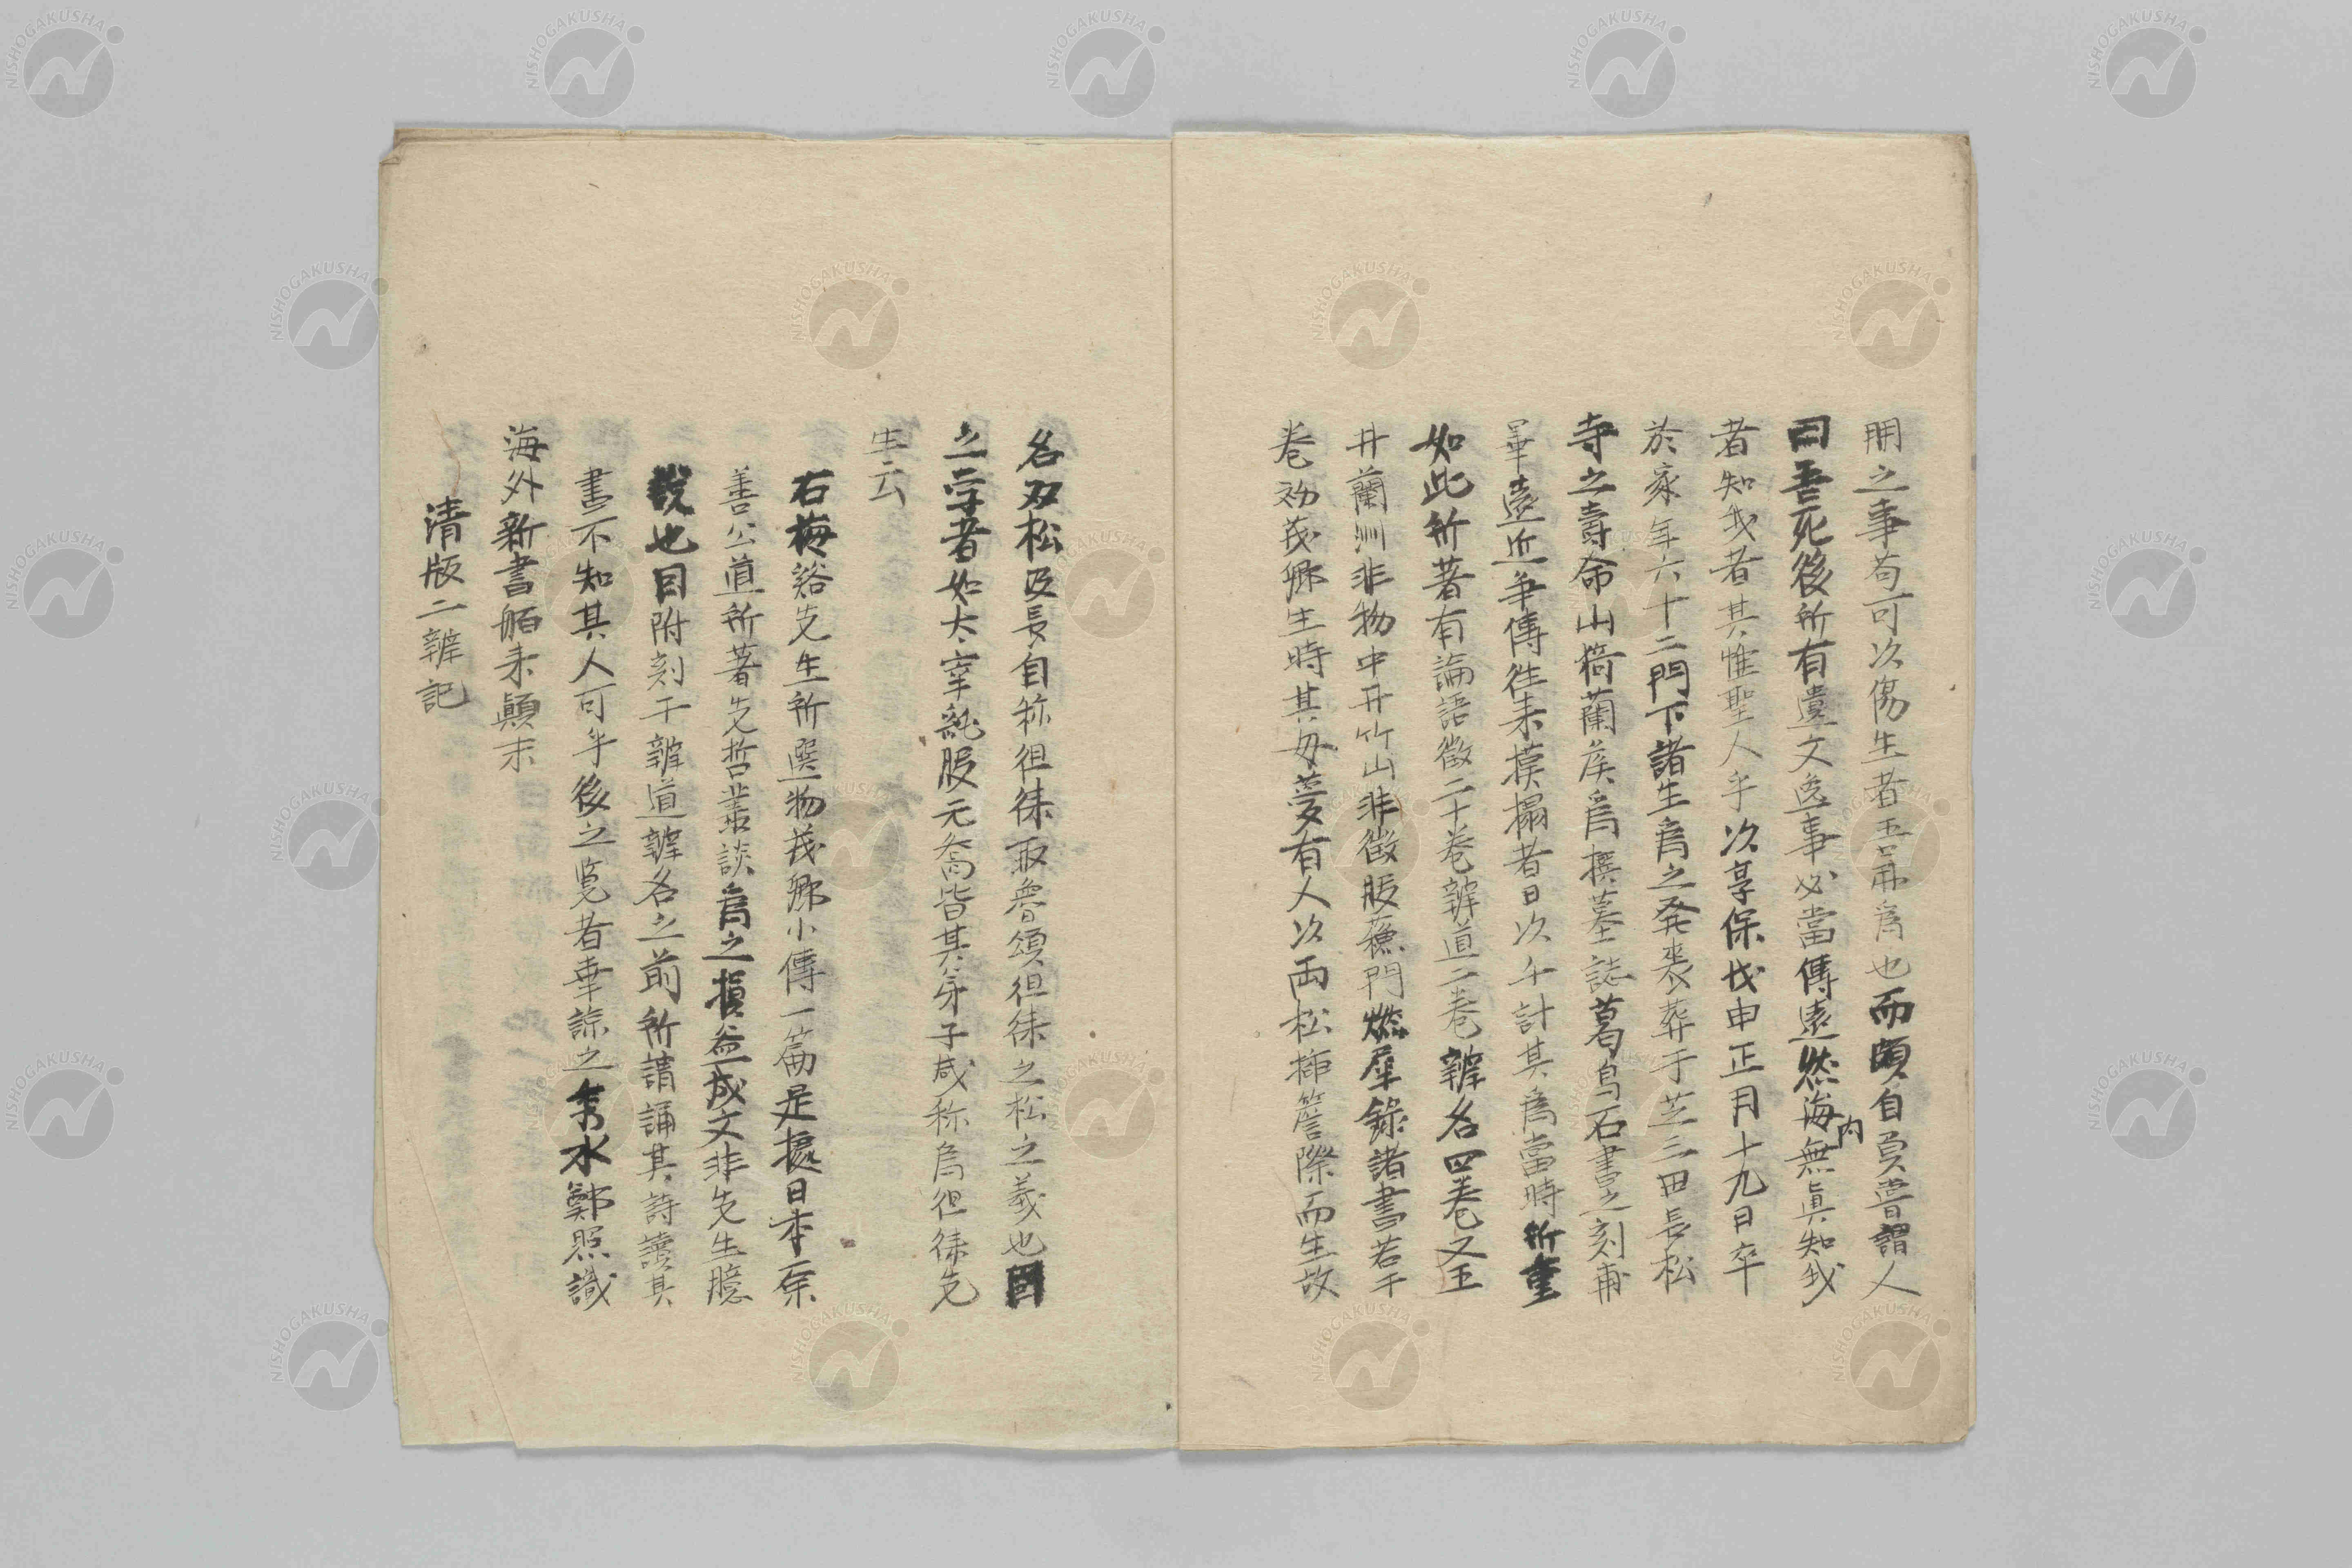 用之事苟可以傷生者五弗為也而頗自負嘗謂人
曰吾死後所有遺文逸事必當傳遠然海内無真知我
者知我者其惟聖人乎以享保戊申正月十九日卒
於家年六十二門下諸生為之発喪葬于芝三田長松
寺之壽命山猗蘭侯為撰墓誌葛烏石書之刻甫
畢遠近争傳往来摸搨者日以千計其為當時所重
如此所著有論語徴二十巻辨道二巻辨名四巻又五
井蘭洲非物中井竹山非徴服蘓門燃犀錄諸書若干
巻初茂卿生時其母夢有人以両松挿簷際而生故
名双松及長自称徂徠取魯頌徂徠之松之義也因
之二字者如太宰純服元喬皆其弟子咸称為徂徠先
生云
右梅谿先生所選物茂卿小傳一篇是據日本原
善公道所著先哲叢談為之損益成文非先生臆
説也因附刻于辨道辨名之前所謂誦其詩讀其
書不知其人可乎後之覧者幸諒之 水鄭照識
海外新書舶来顛末
清版二辨記
NISHOGAKUSHA